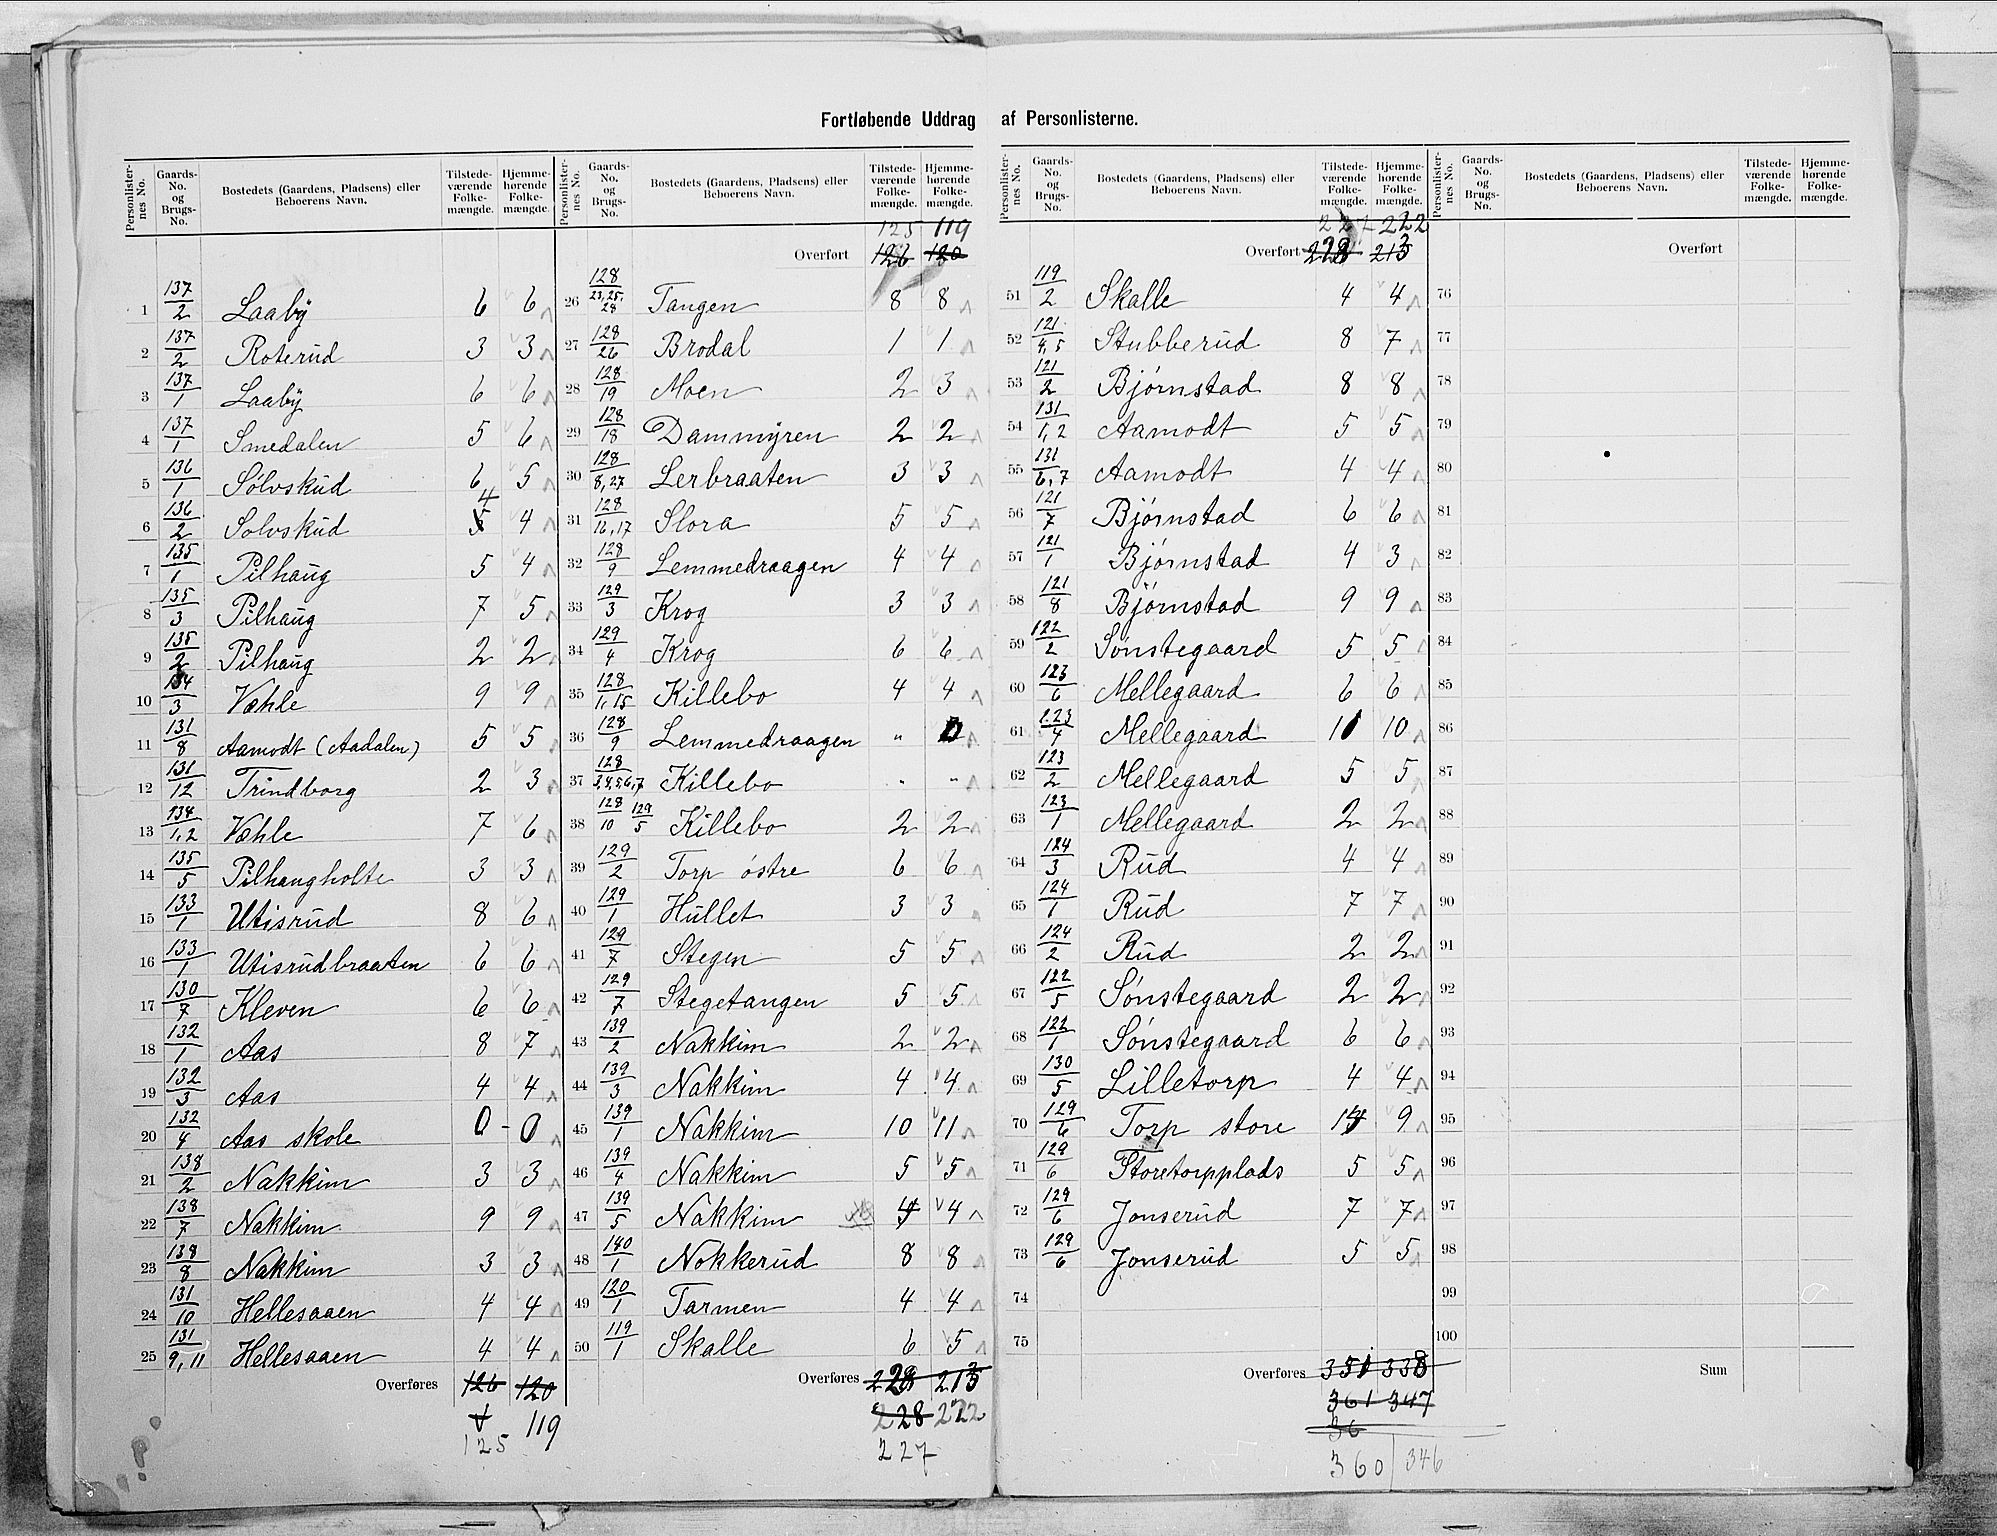 Fortløbende Uddrag af Personlisterne.
Personlisternes No. Gaards-No. og Brugs-No. Bostedets (Gaardens, Pladsens) eller Beboerens Navn. Tilstedeværende Folkemængde. Hjemmehørende Folkemængde.
1 137/2 Laaby 6 6
2 137/2 Roterud 3 3
3 137/1 Laaby 6 6
4 137/1 Smedalen 5 6
5 136/1 Sölvskud 6 5
6 136/2 Solvskud 4 4
7 135/1 Pilhaug 5 4
8 135/3 Pilhaug 7 5
9 135/2 Pilhaug 2 2
10 134/3 Væhle 9 9
11 131/8 Aamodt (Aadalen) 5 5
12 131/12 Trindborg 2 3
13 134/1,2 Væhle 7 6
14 135/5 Pilhaugholte 3 3
15 133/1 Utisrud 8 6
16 133/1 Utisrudbraaten 6 6
17 130/7 Kleven 6 6
18 132/1 Aas 8 7
19 132/3 Aas 4 4
20 132/4 Aas skole 0 - 0
21 138/2 Nakkim 3 3
22 138/7 Nakkim 9 9
23 138/8 Nakkim 3 3
24 131/10 Hellesaaen 4 4
25 131/9,11 Hellesaaen 4 4
Overføres 126 120
119
125
Personlisternes No. Gaards-No. og Brugs-No. Bostedets (Gaardens, Pladsens) eller Beboerens Navn. Tilstedeværende Folkemængde. Hjemmehørende Folkemængde.
125 119
Overført 126 120
26 128/23,25,28 Tangen 8 8
27 128/26 Brodal 1 1
28 128/19 Moen 2 3
29 128/18 Dammyren 2 2
30 128/8,27 Lerbraaten 3 3
31 128/16,17 Slora 5 5
32 128/9 Lemmedraagen 4 4
33 129/3 Krog 3 3
34 129/4 Krog 6 6
35 128/1,15 Killebo 4 4
36 128/9 Lemmedraagen " 0
37 128/3,4,5,6,7 Killebo " "
38 128/10 129/5 Killebo 2 2
39 129/2 Torp östre 6 6
40 129/1 Hullet 3 3
41 129/7 Stegen 5 5
42 129/7 Stegetangen 5 5
43 139/2 Nakkim 2 2
44 139/3 Nakkim 4 4
45 139/1 Nakkim 10 11
46 139/4 Nakkim 5 5
47 139/5 Nakkim 4 4
48 140/1 Nokkerud 8 8
49 120/1 Tarmen 4 4
50 119/1 Skalle 6 5
Overføres 228 213
228 222
227
Personlisternes No. Gaards-No. og Brugs-No. Bostedets (Gaardens, Pladsens) eller Beboerens Navn. Tilstedeværende Folkemængde. Hjemmehørende Folkemængde.
227 222
Overført 228 213
51 119/2 Skalle 4 4
52 121/4,5 Stubberud 8 7
53 121/2 Bjørnstad 8 8
54 131/1,2 Aamodt 5 5
55 131/6,7 Aamodt 4 4
56 121/7 Bjørnstad 6 6
57 121/1 Bjørnstad 4 3
58 121/8 Bjørnstad 9 9
59 122/2 Sønstegaard 5 5
60 123/6 Mellegaard 6 6
61 123/4 Mellegaard 10 10
62 123/2 Mellegaard 5 5
63 123/1 Mellegaard 2 2
64 124/3 Rud 4 4
65 124/1 Rud 7 7
66 124/2 Rud 2 2
67 122/5 Sønstegaard 2 2
68 122/1 Sønstegaard 6 6
69 130/5 Lilletorp 4 4
70 129/6 Torp store 9
71 129/6 Storetorpplads 5 5
72 129/6 Jonserud 7 7
73 129/6 Jonserud 5 5
74
75
Overføres 351 338
361 347
36
360 346
Personlisternes No. Gaards-No. og Brugs-No. Bostedets (Gaardens, Pladsens) eller Beboerens Navn. Tilstedeværende Folkemængde. Hjemmehørende Folkemængde.
Overført
76
77
78
79
80
81
82
83
84
85
86
87
88
89
90
91
92
93
94
95
96
97
98
99
100
Sum